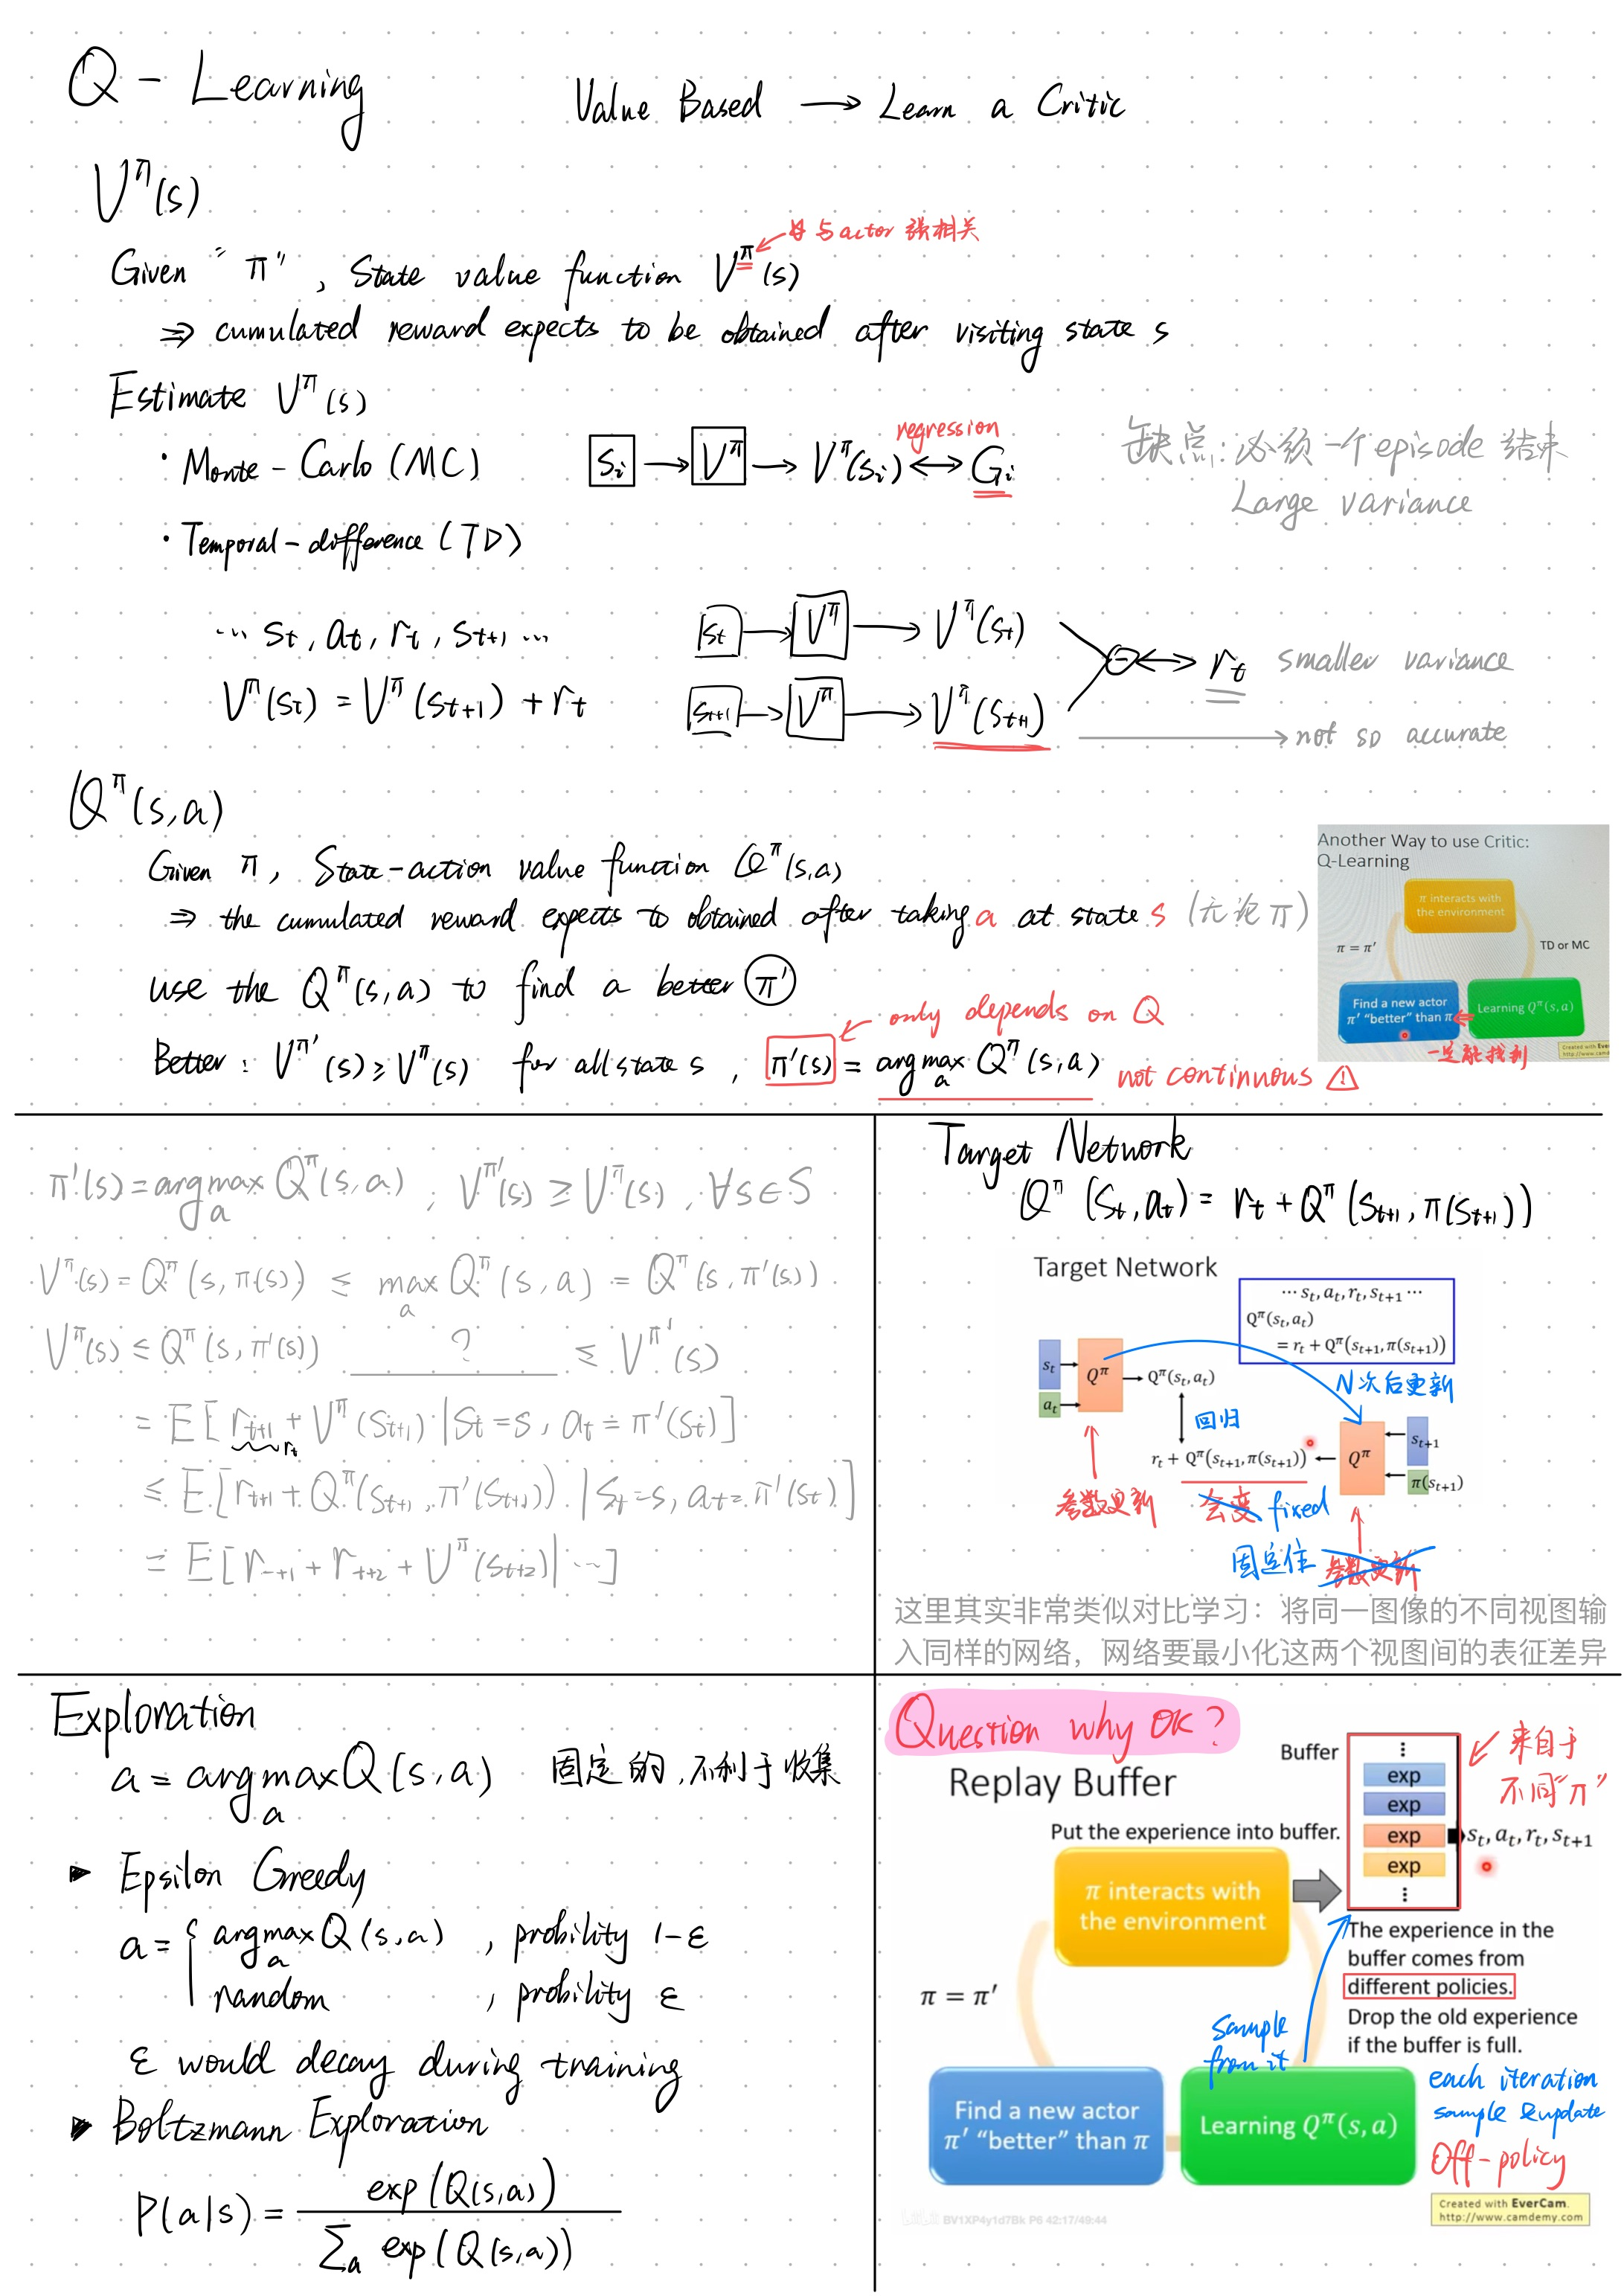 Q - Learning
Value Based → Learn a Critic
V^π(s)
与actor强相关
Given "π", State value function V^π(s)
⇒ cumulated reward expects to be obtained after visiting state s
Estimate V^π(s)
· Monte-Carlo (MC)
s_i → V^π → V^π(s_i) ↔ G_i
regression
缺点: 必须一个episode结束
Large variance
· Temporal-difference (TD)
... s_t, a_t, r_t, s_{t+1} ...
V^π(s_t) = V^π(s_{t+1}) + r_t
s_t → V^π → V^π(s_t)
⊖ ↔ r_t smaller variance
s_{t+1} → V^π → V^π(s_{t+1})
→ not so accurate
Q^π(s,a)
Given π, State-action value function Q^π(s,a)
⇒ the cumulated reward expects to obtained after taking a at state s (无论π)
use the Q^π(s,a) to find a better π'
only depends on Q
Better: V^π'(s) ≥ V^π(s) for all state s, π'(s) = arg max_a Q^π(s,a) not continuous ⚠
Another Way to use Critic:
Q-Learning
π interacts with
the environment
π = π′
TD or MC
Find a new actor
π′ "better" than π
Learning Q^π(s,a)
一定能找到
π'(s) = arg max_a Q^π(s,a), V^π'(s) ≥ V^π(s), ∀s∈S
V^π(s) = Q^π(s,π(s)) ≤ max_a Q^π(s,a) = Q^π(s,π'(s))
V^π(s) ≤ Q^π(s,π'(s)) ? ≤ V^π'(s)
= E[r_{t+1} + V^π(s_{t+1}) | s_t = s, a_t = π'(s_t)]
r_t
≤ E[r_{t+1} + Q^π(s_{t+1},π'(s_{t+1})) | s_t = s, a_t = π'(s_t)]
= E[r_{t+1} + r_{t+2} + V^π(s_{t+2}) | ...]
Target Network
Q^π(s_t,a_t) = r_t + Q^π(s_{t+1},π(s_{t+1}))
Target Network
⋯ s_t, a_t, r_t, s_{t+1} ⋯
Q^π(s_t,a_t)
= r_t + Q^π(s_{t+1},π(s_{t+1}))
s_t
a_t
Q^π
Q^π(s_t,a_t)
N次后更新
回归
r_t + Q^π(s_{t+1},π(s_{t+1}))
Q^π
s_{t+1}
π(s_{t+1})
参数更新
会变 fixed
固定住 参数更新
这里其实非常类似对比学习：将同一图像的不同视图输
入同样的网络，网络要最小化这两个视图间的表征差异
Exploration
a = arg max_a Q(s,a) 固定的,不利于收集
▸ Epsilon Greedy
a = { arg max_a Q(s,a) , probility 1-ε
random , probility ε
ε would decay during training
▸ Boltzmann Exploration
P(a|s) = exp(Q(s,a)) / Σ_a exp(Q(s,a))
Question why OK?
Replay Buffer
Buffer
exp
exp
exp
exp
来自于
不同"π"
s_t, a_t, r_t, s_{t+1}
Put the experience into buffer.
π interacts with
the environment
The experience in the
buffer comes from
different policies.
Drop the old experience
if the buffer is full.
π = π′
sample
from it
each iteration
sample & update
Off-policy
Find a new actor
π′ "better" than π
Learning Q^π(s,a)
Created with EverCam.
http://www.camdemy.com
BV1XP4y1d7Bk P6 42:17/49:44